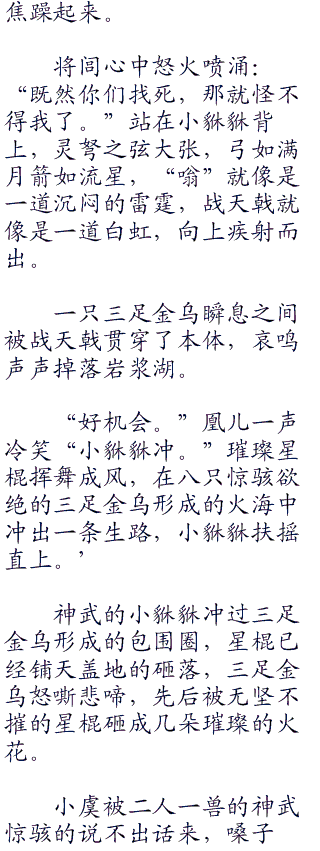 焦躁起来。
将闾心中怒火喷涌：
“既然你们找死，那就怪不
得我了。”站在小貅貅背
上，灵弩之弦大张，弓如满
月箭如流星，“嗡”就像是
一道沉闷的雷霆，战天戟就
像是一道白虹，向上疾射而
出。
一只三足金乌瞬息之间
被战天戟贯穿了本体，哀鸣
声声掉落岩浆湖。
“好机会。”凰儿一声
冷笑“小貅貅冲。”璀璨星
棍挥舞成风，在八只惊骇欲
绝的三足金乌形成的火海中
冲出一条生路，小貅貅扶摇
直上。’
神武的小貅貅冲过三足
金乌形成的包围圈，星棍已
经铺天盖地的砸落，三足金
乌怒嘶悲啼，先后被无坚不
摧的星棍砸成几朵璀璨的火
花。
小虞被二人一兽的神武
惊骇的说不出话来，嗓子